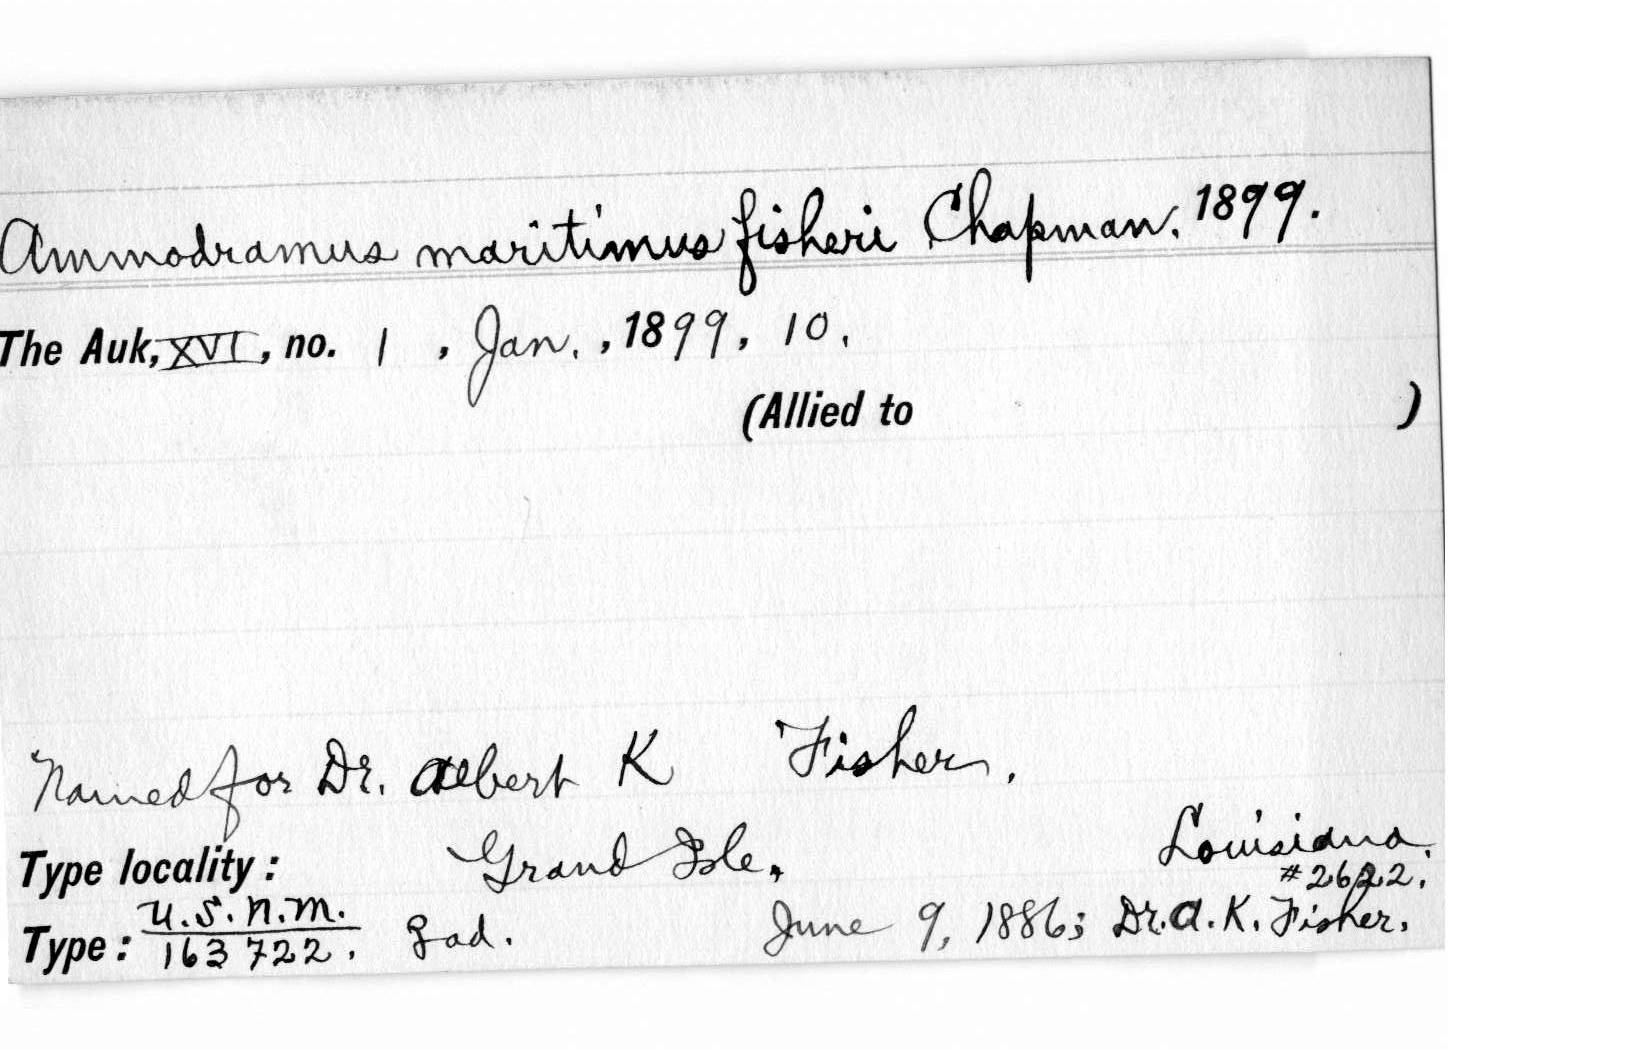 Ammodramus maritimus fisheri Chapman. 1899.
The Auk, XVI, no. 1, Jan., 1899, 10.
(Allied to )
Named for Dr. Albert K Fisher.
Type locality: Grand Isle, Louisiana.
#2622.
Type: U.S.N.M. 163722. ad. June 9, 1886; Dr. A. K. Fisher.